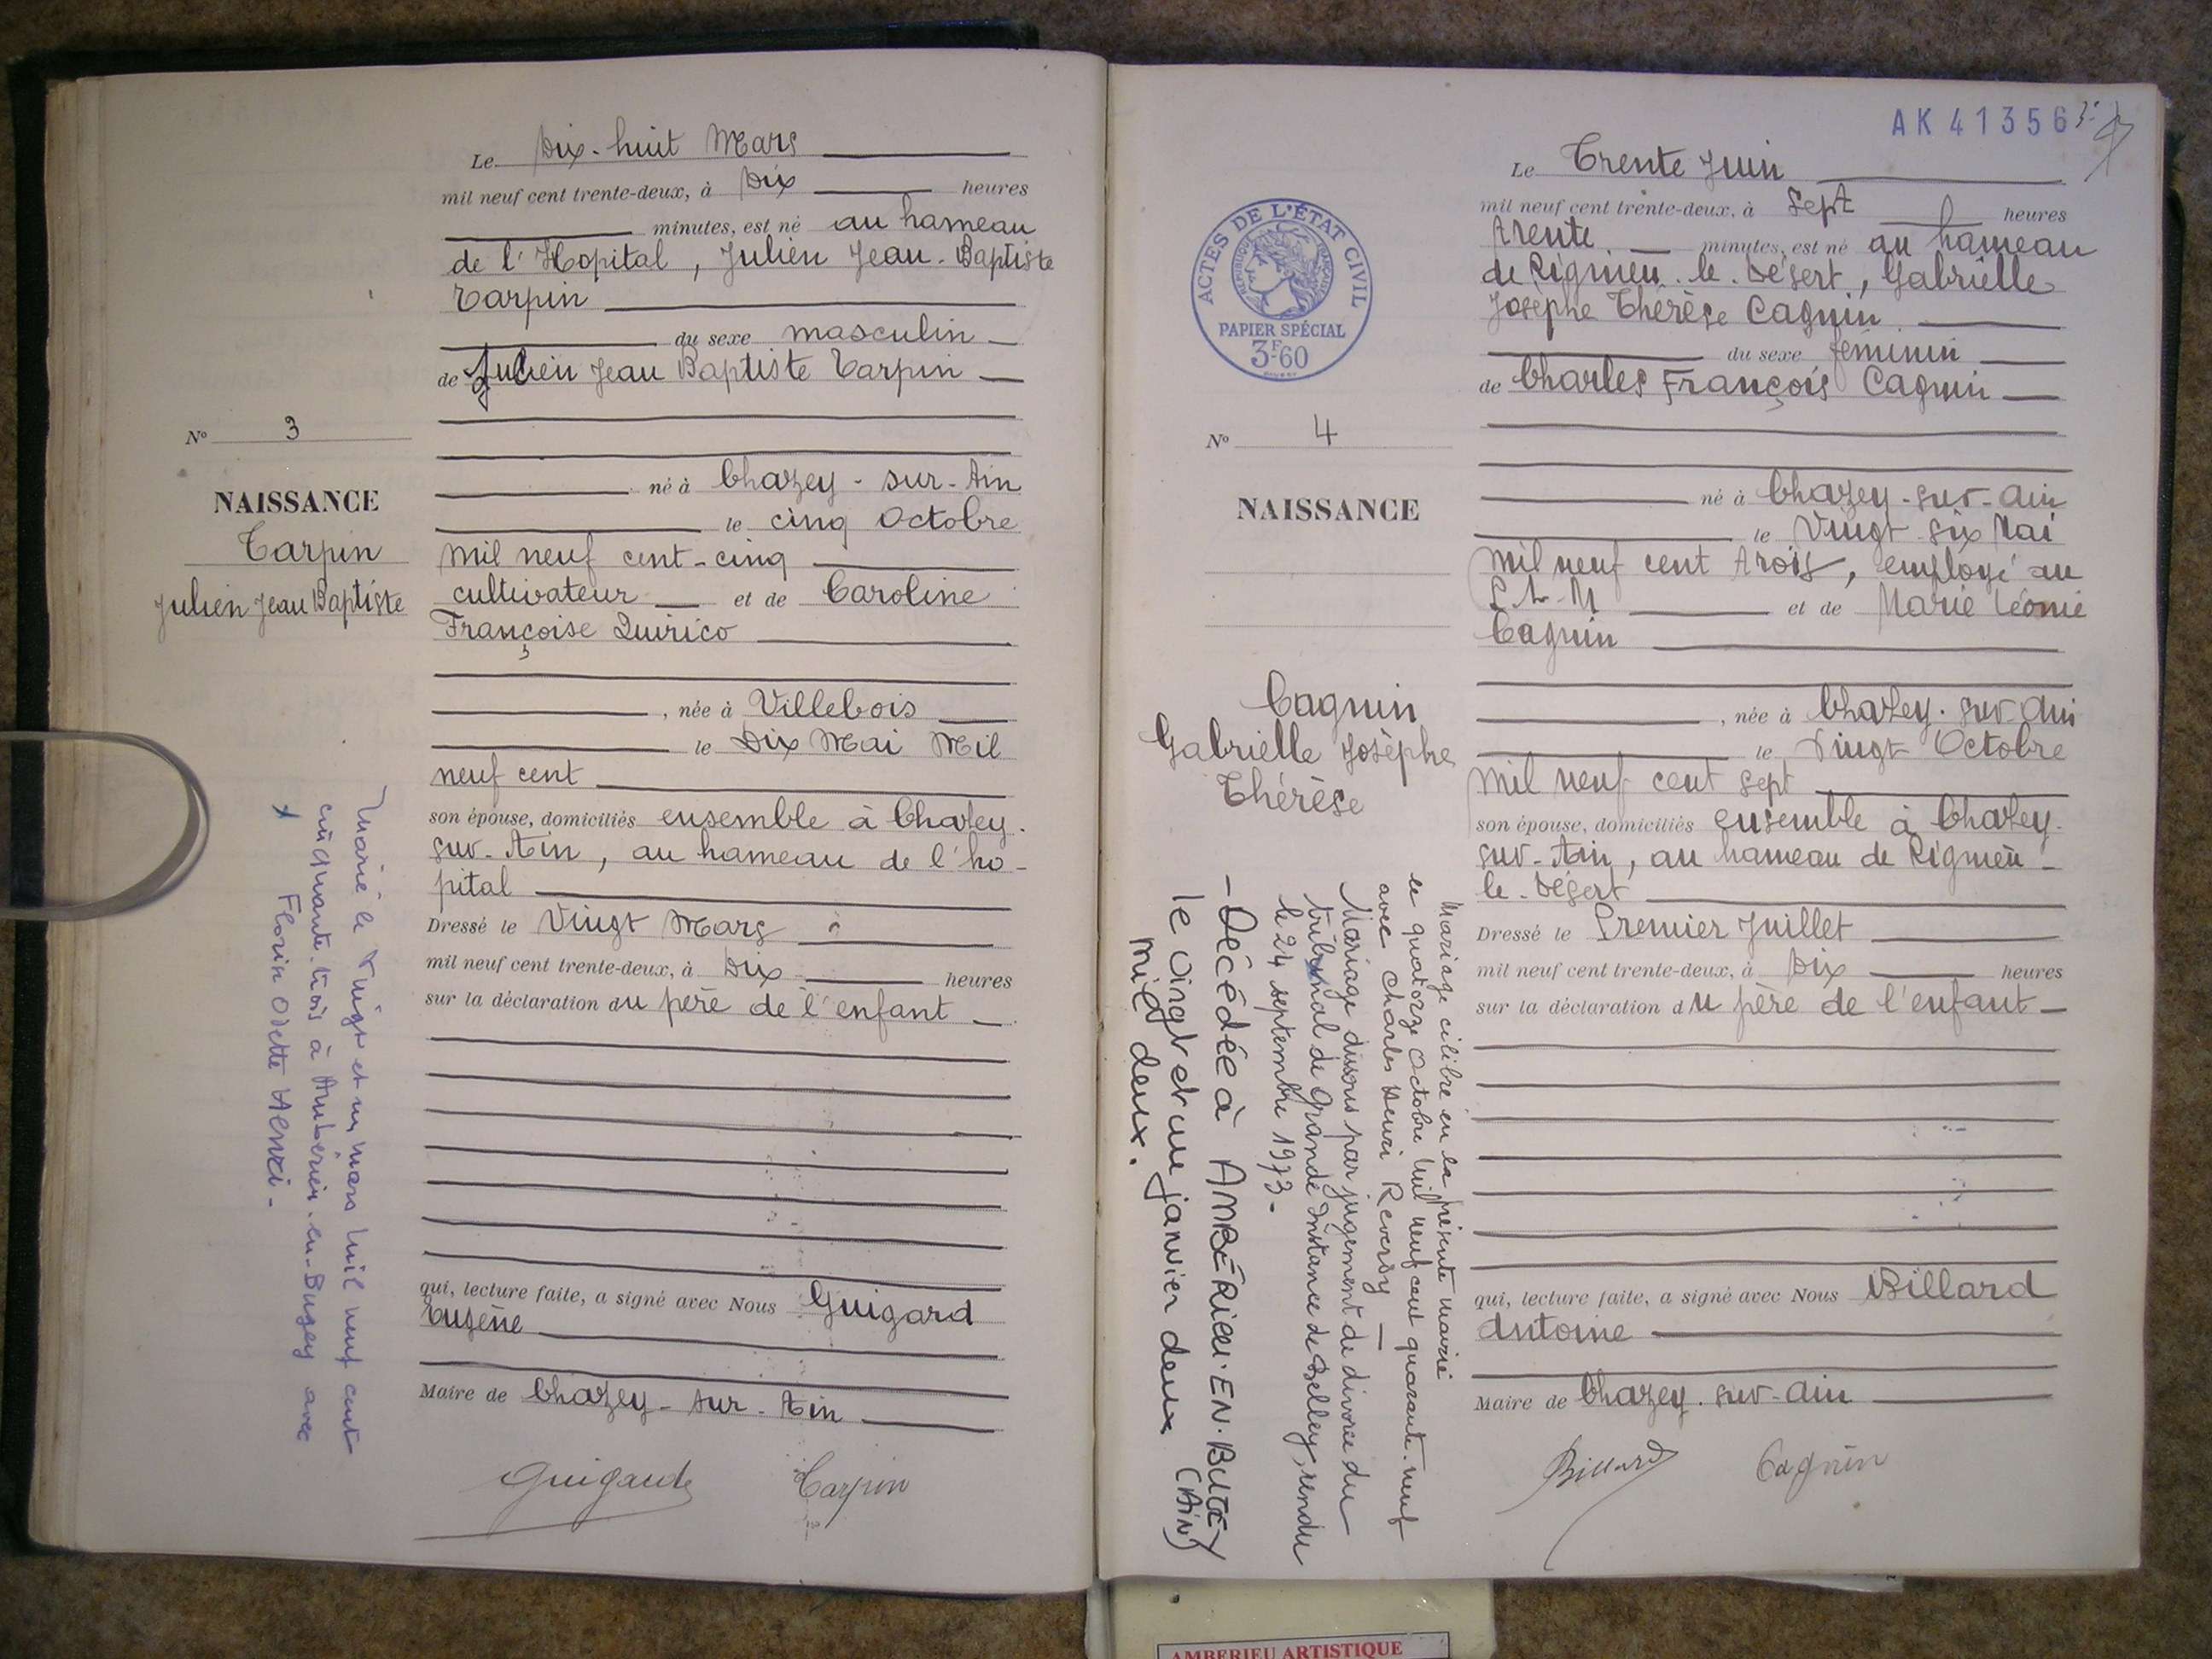 Le Dix-huit Mars
mil neuf cent trente-deux, à Dix heures
minutes, est né au hameau
de l'Hopital, Julien Jean-Baptiste
Tarpin
du sexe masculin
de Julien Jean Baptiste Tarpin
né à Chazey-sur-Ain
le cinq Octobre
mil neuf cent-cinq
cultivateur et de Caroline
Françoise Quirico
, née à Villebois
le Dix Mai Mil
neuf cent
son épouse, domiciliés ensemble à Chazey-
sur-Ain, au hameau de l'ho-
pital
Dressé le Vingt Mars
mil neuf cent trente-deux, à Dix heures
sur la déclaration du père de l'enfant
qui, lecture faite, a signé avec Nous Guigard
Eugène
Maire de Chazey-sur-Ain
Guigard Tarpin
No 3
NAISSANCE
Tarpin
Julien Jean Baptiste
Marié le vingt et un mars mil neuf cent
cinquante-trois à Ambérieu-en-Bugey avec
Florin Odette
AK 41356
ACTES DE L'ÉTAT CIVIL
RÉPUBLIQUE FRANÇAISE
PAPIER SPÉCIAL
3F60
Le Trente Juin
mil neuf cent trente-deux, à Sept heures
trente minutes, est né au hameau
de Rignieu-le-Désert, Gabrielle
Josèphe Thérèse Cagnin
du sexe féminin
de Charles François Cagnin
né à Chazey-sur-Ain
le Vingt-six Mai
mil neuf cent trois, employé au
P.L.M et de Marie Léonie
Cagnin
, née à Chazey-sur-Ain
le Vingt Octobre
mil neuf cent sept
son épouse, domiciliés ensemble à Chazey-
sur-Ain, au hameau de Rignieu-
le-Désert
Dressé le Premier Juillet
mil neuf cent trente-deux, à Dix heures
sur la déclaration du père de l'enfant
qui, lecture faite, a signé avec Nous Billard
Antoine
Maire de Chazey-sur-Ain
Billard Cagnin
No 4
NAISSANCE
Cagnin
Gabrielle Josèphe
Thérèse
Mariage célébré en la présente mairie
le quatorze Octobre mil neuf cent quarante-neuf
avec Charles Henri Reverdy
Mariage dissous par jugement de divorce du
tribunal de Grande Instance de Belley, rendu
le 24 septembre 1973-
- Décédée à AMBÉRIEU-EN-BUGEY (AIN)
le vingt et un janvier deux
mil deux.
AMBERIEU ARTISTIQUE